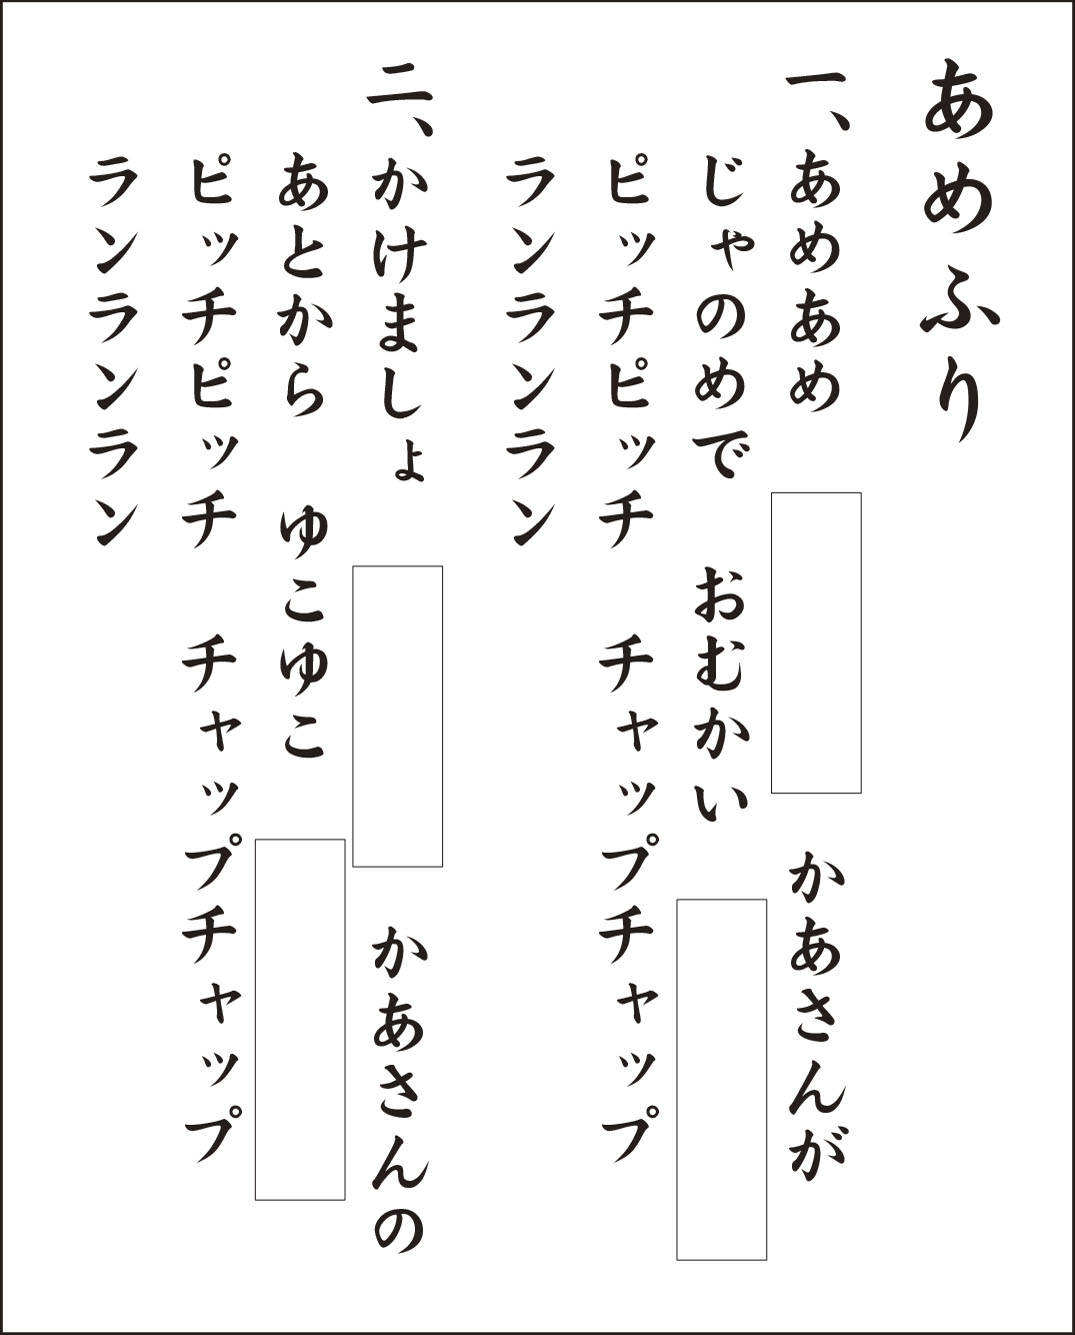 あめふり
一、あめあめ かあさんが
じゃのめで おむかい
ピッチピッチ チャップチャップ
ランランラン
二、かけましょ かあさんの
あとから ゆこゆこ
ピッチピッチ チャップチャップ
ランランラン